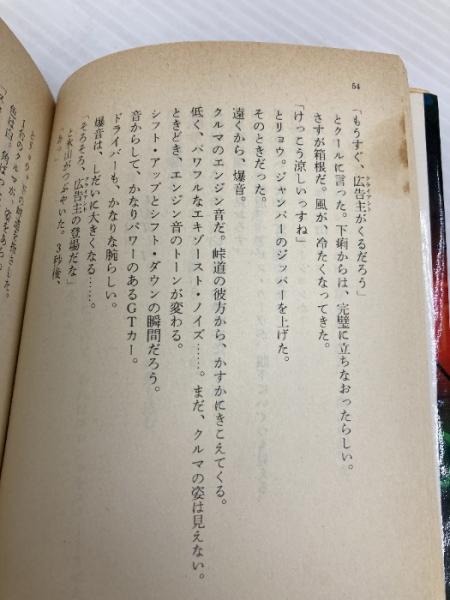 54
「もうすぐ、広告主がくるだろう」
クライアント
とクールに言った。下痢からは、完璧に立ちなおったらしい。
さすが箱根だ。風が、冷たくなってきた。
「けっこう涼しいっすね」
とリョウ。ジャンパーのジッパーを上げた。
そのときだった。
遠くから、爆音。
クルマのエンジン音だ。峠道の彼方から、かすかにきこえてくる。
低く、パワフルなエキゾースト・ノイズ……。まだ、クルマの姿は見えない。
ときどき、エンジン音のトーンが変わる。
シフト・アップとシフト・ダウンの瞬間だろう。
音からして、かなりパワーのあるGTカー。
ドライバーも、かなりな腕らしい。
爆音は、しだいに大きくなる……。
「そろそろ、広告主の登場だな」
がつぶやいた。3秒後、